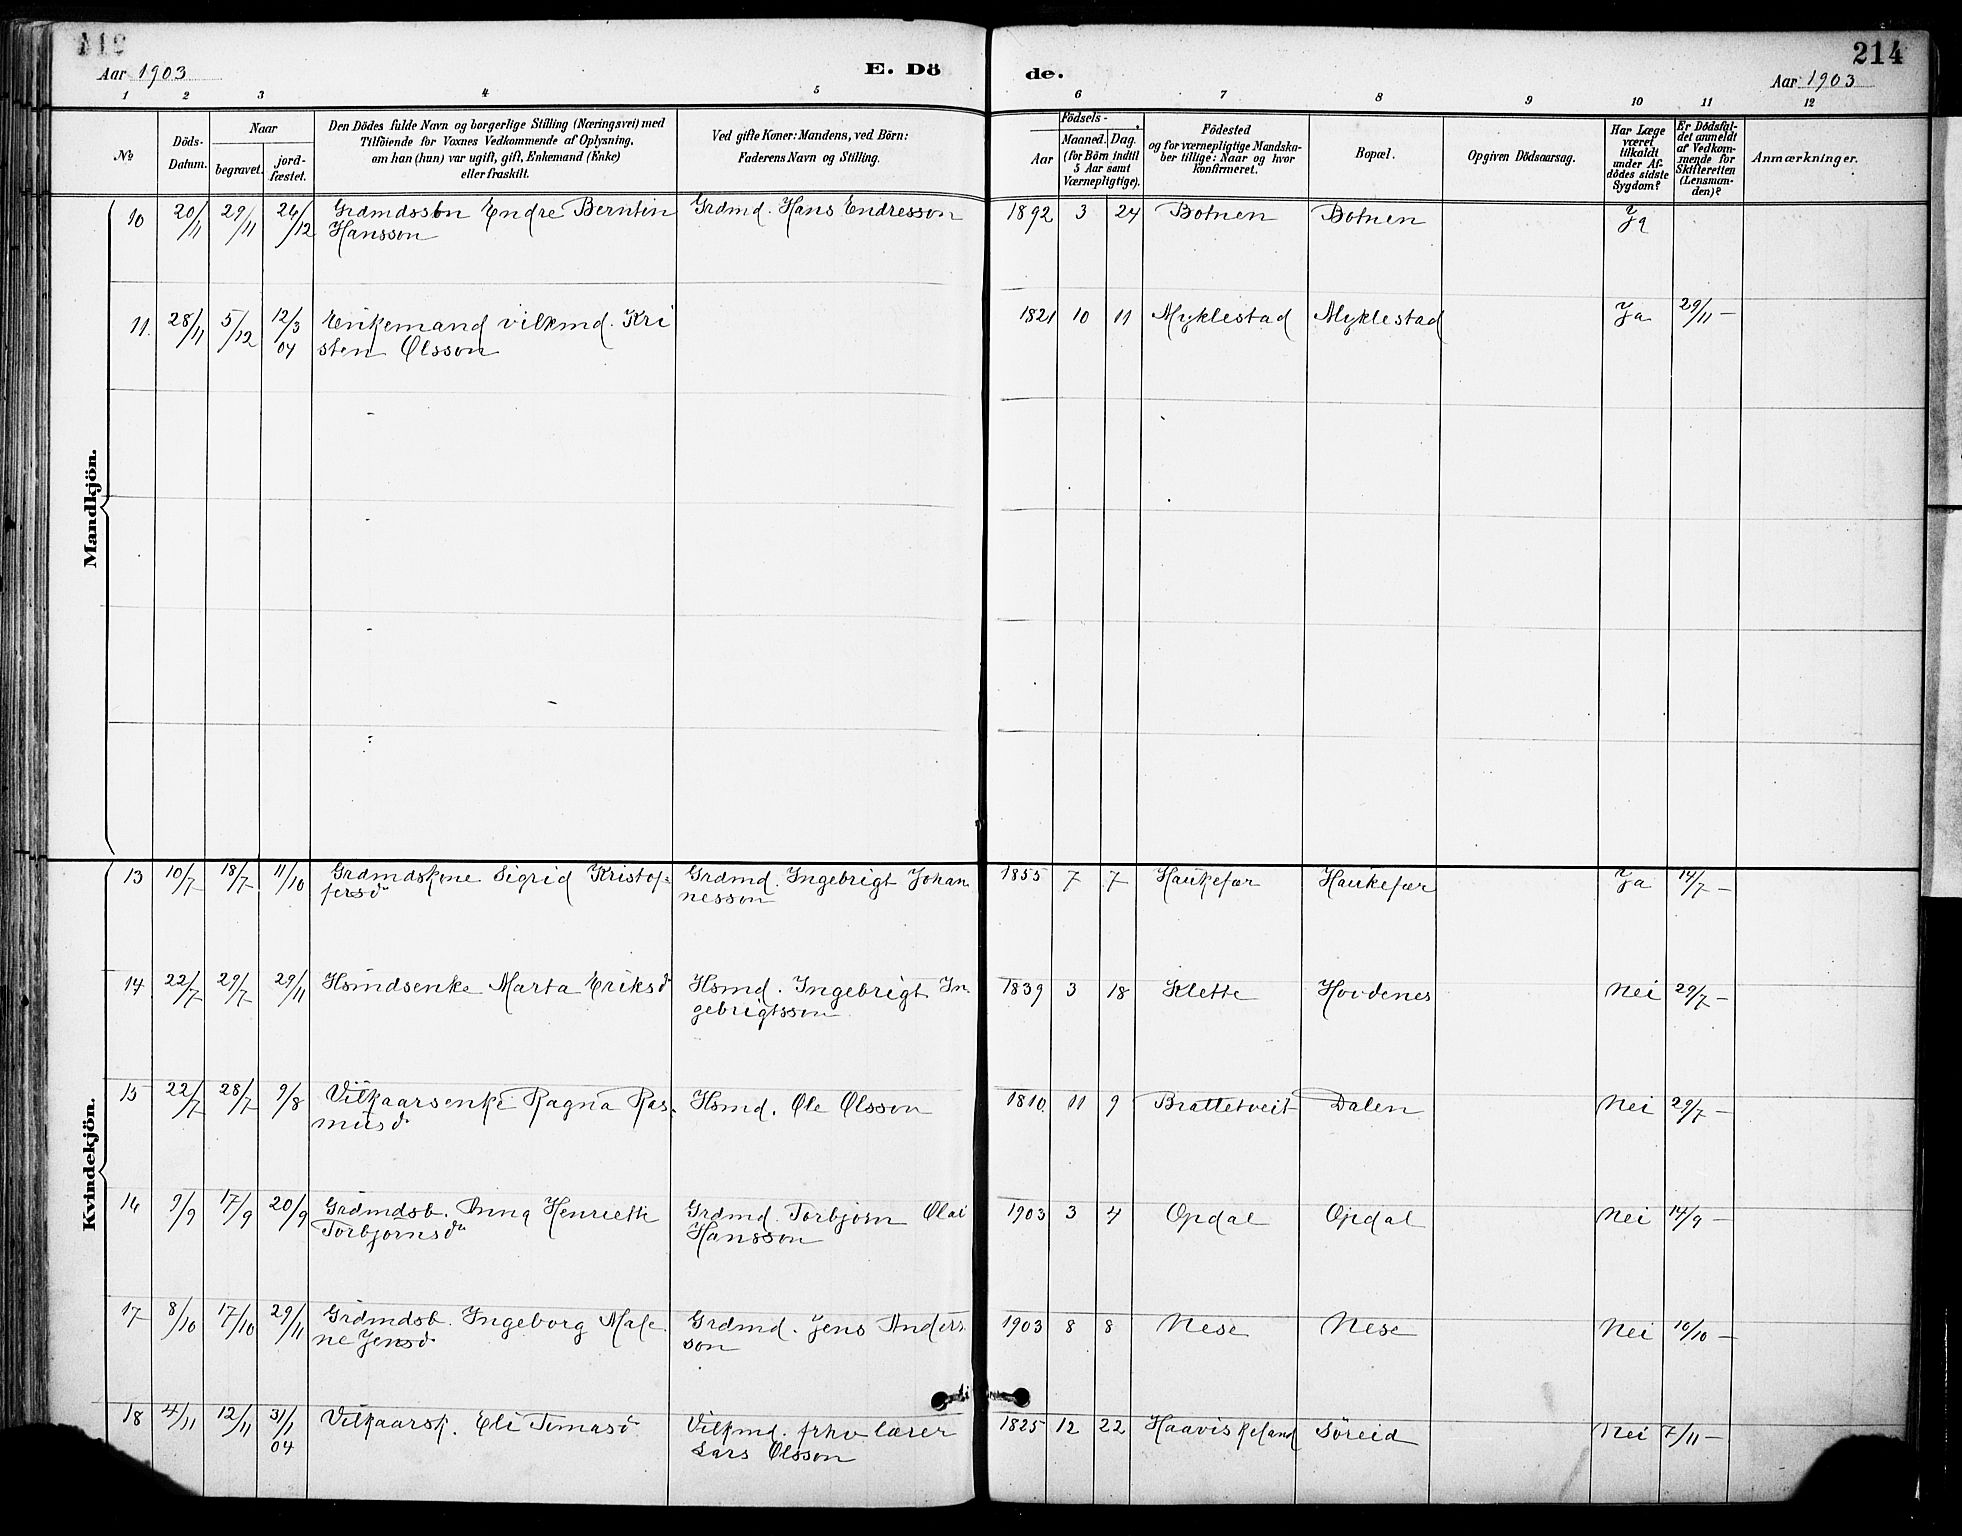 214
Aar 1903
E. Dö
de.
Aar 1903
1 2 3 4 5 6 7 8 9 10 11 12
No
Döds-
Datum.
Naar
begravet.
jord-
fæstet.
Den Dödes fulde Navn og borgerlige Stilling (Næringsvei) med
Tilföiende for Voxnes Vedkommende af Oplysning,
om han (hun) var ugift, gift, Enkemand (Enke)
eller fraskilt.
Ved gifte Koner: Mandens, ved Börn:
Faderens Navn og Stilling.
Födsels-
Aar
Maaned. Dag.
(for Börn indtil
5 Aar samt
Værnepligtige).
Födested
og for værnepligtige Mandska-
ber tillige: Naar og hvor
konfirmeret.
Bopæl.
Opgiven Dödsaarsag.
Har Læge
været
tilkaldt
under Af-
dödes sidste
Sygdom?
Er Dödsfal-
det anmeldt
af Vedkom-
mende for
Skifteretten
(Lensman-
den)?
Anmærkninger.
Mandkjön.
10 20/11 29/11 26/12 Grdmdssön Endre Berntin Grdmd. Hans Endresson 1892 3 24 Botnen Botnen Ja
Hansson
11. 28/11 5/12 12/3 Enkemand vilkmd. Kri 1821 10 11 Myklestad Myklestad Ja 29/11 —
04 sten Olsson
Kvindekjön.
13 10/7 18/7 11/10 Grdmdskone Sigrid Kristof- Grdmd. Ingebrigt Johan 1855 7 7 Haukefær Haukefær Ja 14/7 —
fersd nesson
14 22/7 29/7 29/11 Hsmdsenke Marta Eriksd Hsmd. Ingebrigt In 1839 3 18 Klette Hovdenes Nei 29/7 —
gebrigtsson
15 22/7 28/7 9/8 Vilkaarsenke Ragna Ras- Hsmd. Ole Olsson 1810 11 9 Brattetveit Dalen Nei 29/7 —
musd
16 9/9 17/9 20/9 Grdmdsb. Anna Henriette Grdmd. Torbjørn Olai 1903 3 4 Opdal Opdal Nei 14/9 —
Torbjørnsd Hansson
17 8/10 17/10 29/11 Grdmdsb. Ingeborg Male Grdmd. Jens Anders 1903 8 8 Nese Nese Nei 10/10 —
ne Jensd son
18 4/11 12/11 31/1 Vilkaarsk. Eli Tomasd Vilkmd. frhv lærer 1825 12 22 Haaviskeland Söreid Nei 7/11 —
04 Lars Olsson